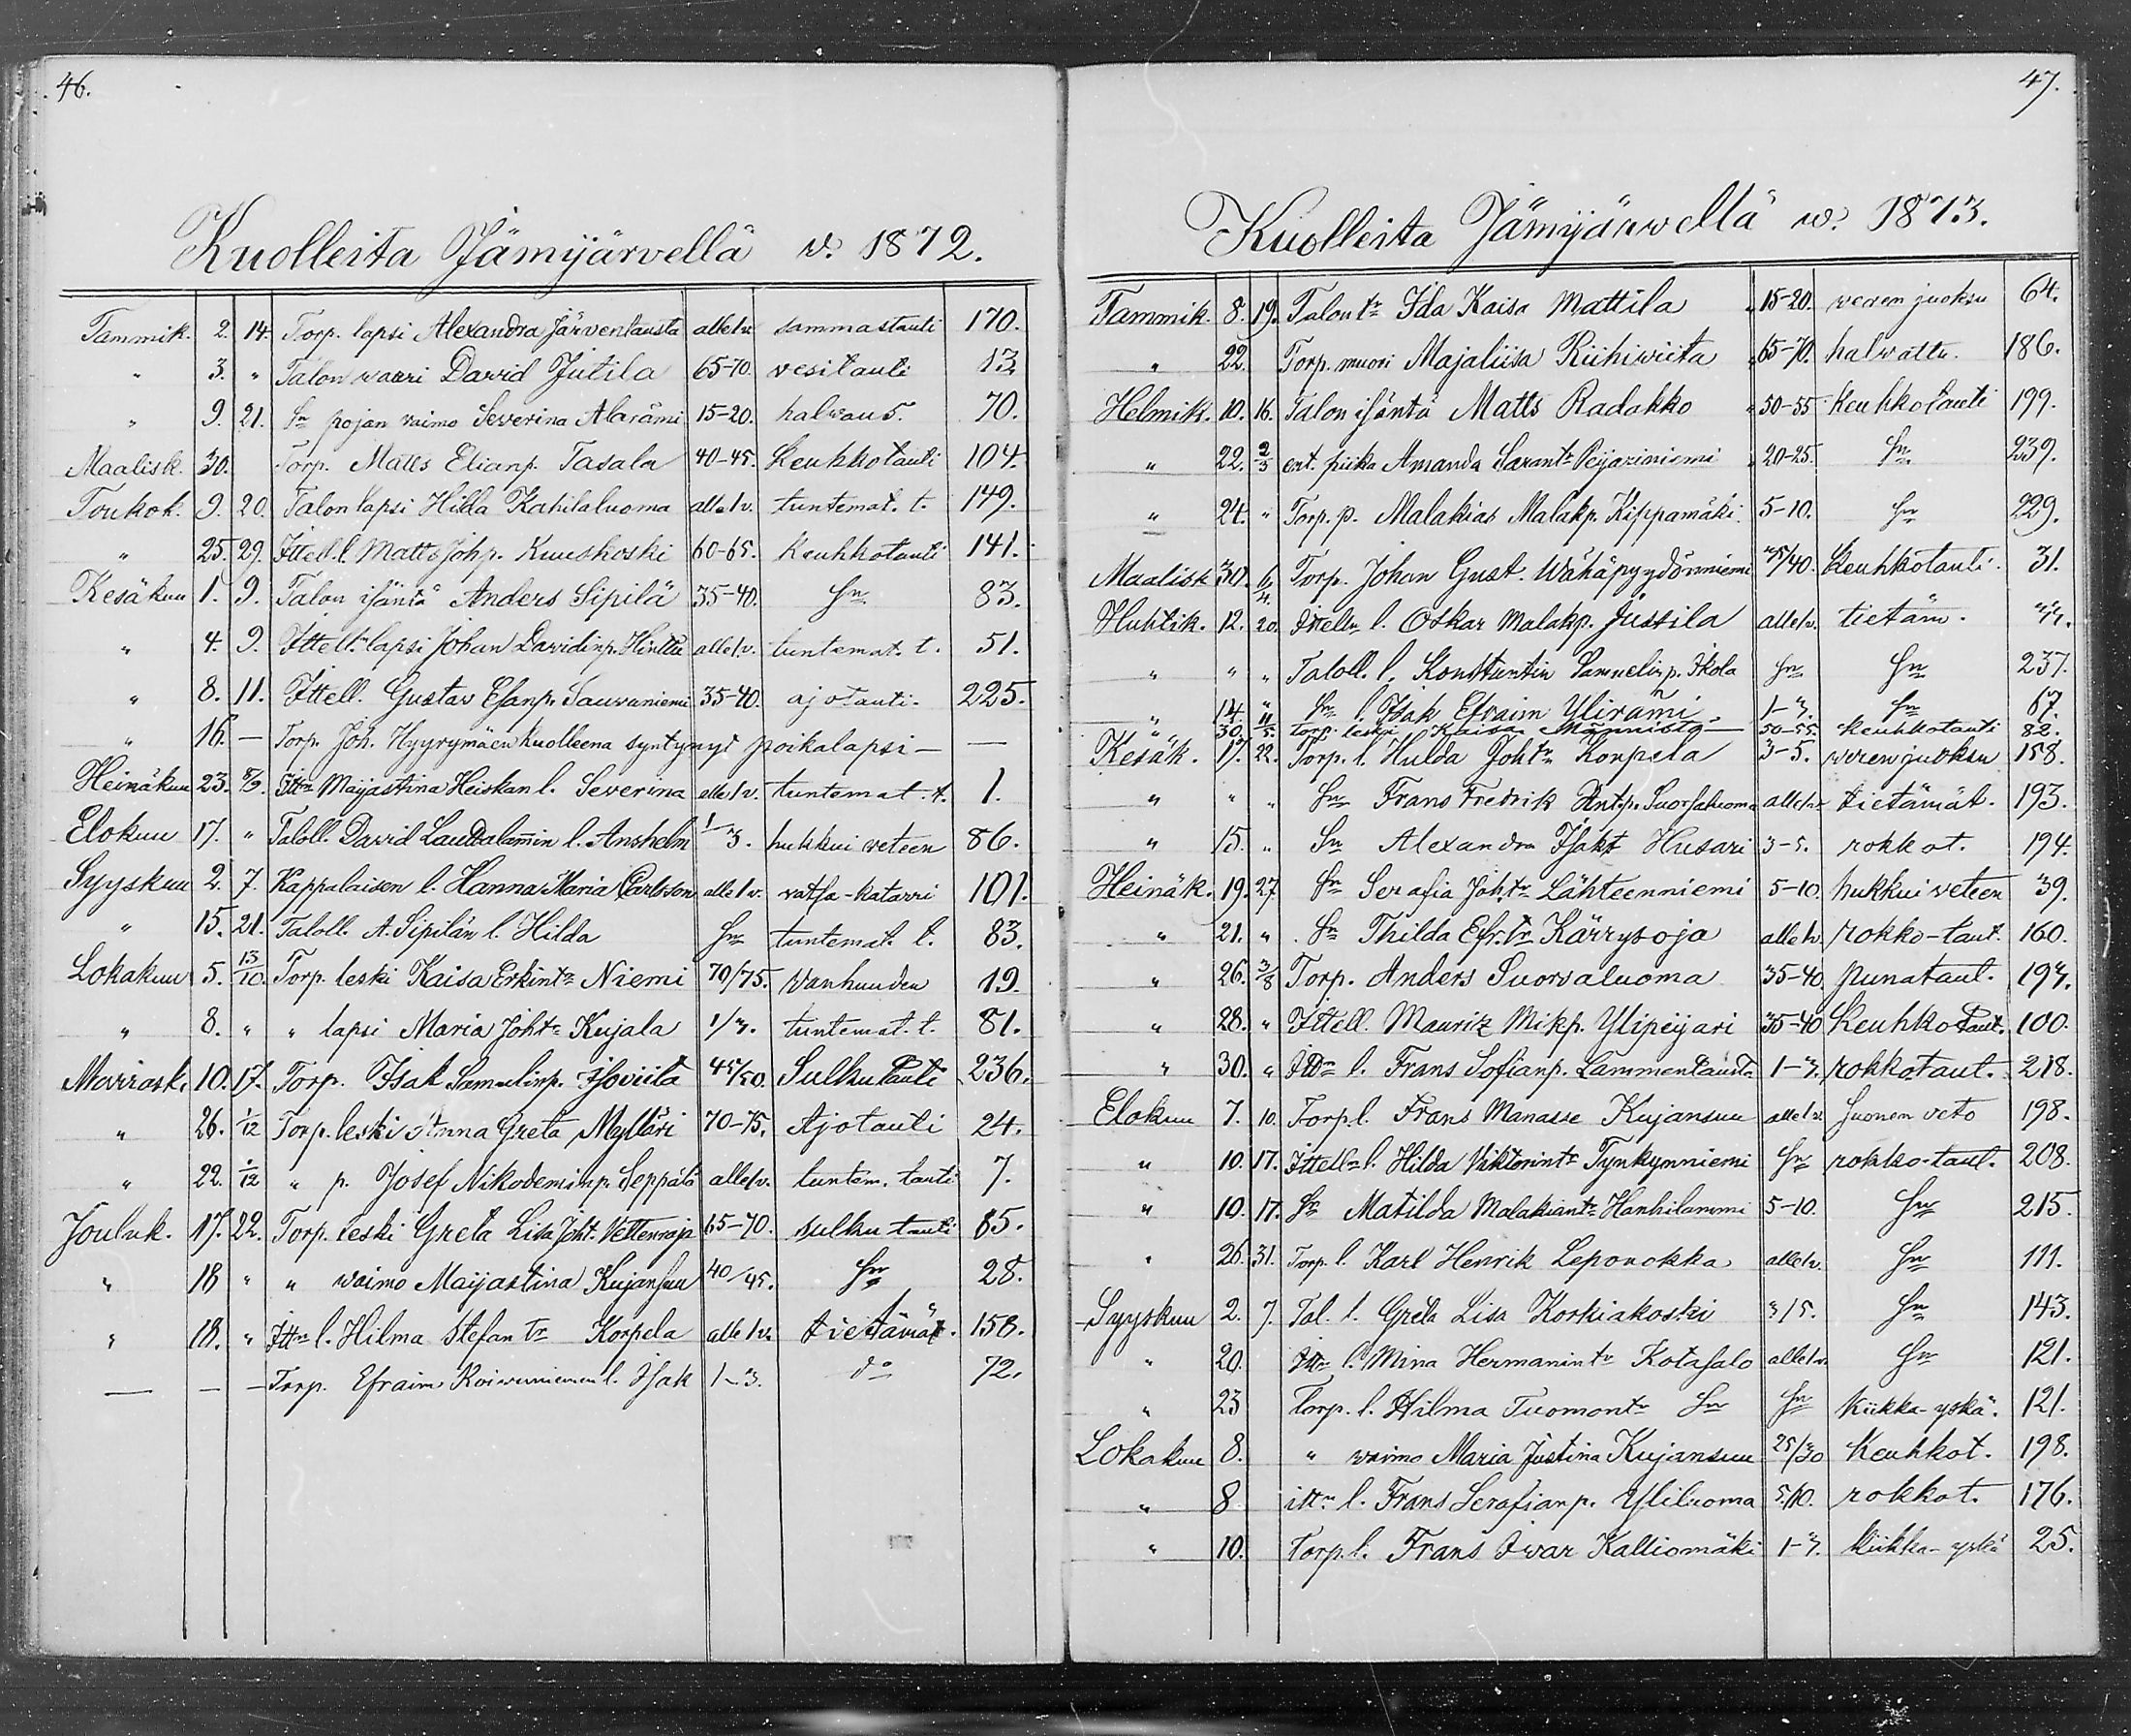 46.
Kuolleita Jämijärvellä v. 1872.
Tammik. 2. 14. Torp. lapsi Alexandra Järventausta alle 1 v. sammastauti 170.
" 3. " Talon waari David Jutila 65-70. vesitauti 13.
" 9. 21. Sn pojan vaimo Severina Alarämi 15-20. halwaus. 70.
Maalisk. 30. Torp. Matts Elianp. Tasala 40-45. Keuhkotauti 104.
Toukok. 9. 20. Talon lapsi Hilda Kahilaluoma alle 1 v. tuntemat. t. 149.
" 25. 29. Ittell. l. Matts Johp. Kuuskoski 60-65. keuhkotauti 141.
Kesäkuu 1. 9. Talon isäntä Anders Sipilä 35-40. Sn 83.
" 4. 9. Ittell. lapsi Johan Davidinp. Hinttu alle 1 v. tuntemat. t. 51.
" 8. 11. Ittell. Gustav Esanp. Sauvaniemi 35-40. ajotauti. 225.
" 16. — Torp. Joh. Hyyrymäen kuolleena syntynyt poikalapsi — —
Heinäkuu 23. 8/9. Ittn Maijastina Heiskan l. Severina alle 1 v. tuntemat. t. 1.
Elokuu 17. " Taloll. David Laudalamin l. Anshelm 1/3. hukkui veteen 86.
Syyskuu 2. 7. Kappalaisen l. Hanna Maria Carlsson alle 1 v. vatsa-katarri 101.
" 15. 21. Taloll. A. Sipilän l. Hilda Sn tuntemat. t. 83.
Lokakuu 5. 13/10. Torp. leski Kaisa Erkintr Niemi 70/75. Vanhuuden 19.
" 8. " " lapsi Maria Johtr Kujala 1/3. tuntemat. t. 81.
Marrask. 10. 17. Torp. Isak Samulinp. Isoviita 45/50. Sulkutauti 236.
" 26. 1/12 Torp. leski Anna Greta Mylläri 70-75. Ajotauti 24.
" 22. 1/12 " p. Josef Nikodeminp. Seppälä alle 1 v. tuntem. tauti 7.
Jouluk. 17. 22. Torp. leski Greta Lisa Joht. 65-70. sulku tauti 85.
" 18 " " waimo Maijastina Kujansuu 40/45. Sn 28.
" 18. " Ittn l. Hilma Stefantr Korpela alle 1 v. tietämät. 158.
— — — Torp. Efraim Koiwuniemen l. Isak 1-3. do 72.
47.
Kuolleita Jämijärwellä w. 1873.
Tammik. 8. 19. Talon tr Ida Kaisa Mattila 15-20. veren juoksu 64.
" 22. Torp. muori Majaliisa Riihiwiita 65-70. halvattu. 186.
Helmik. 10. 16. Talon isäntä Matts Radakko 50-55 Keuhkotauti 199.
" 22. 2/3 ent. piika Amanda Sarantr Peijariniemi 20-25. Sn 239.
" 24. " Torp. p. Malakias Malakp. Kippamäki. 5-10. Sn 229.
Maalisk 30. 6/4. Torp. Johan Gust. Wähäpyydönniemi 35/40. Keuhkotauti. 31.
Huhtik. 12. 20. Ittelln l. Oskar Malakp. Jussila alle 1 v. tietäm.
" " " Taloll. l. Konstantin Samuelinp. Ikola Sn Sn 237.
" 14. " Sn l. Isak Efraim Ylirämi 1-3. Sn 67.
" 30. 11/5. Torp. leski Kaisa Männistö 50-55. keuhkotauti 82.
Kesäk. 1. 22. Torp. l. Hulda Johtr Korpela 3-5. werenjuoksu 158.
" " " Sn Frans Fredrik Antp. Suorsaluoma alle 1 v. tietämät. 193.
" 15. " Sn Alexandra Isakt Husari 3-5. rokkot. 194.
Heinäk. 19. 27. Sn Serafia Johtr Lähteenniemi 5-10. hukkui veteen 39.
" 21. " Sn Thilda Efr.tr Kärrysoja alle 1v. rokko-taut. 160.
" 26. 3/8 Torp. Anders Suorsaluoma 35-40. punataut. 193.
" 28. " Ittell. Mauritz Mikp. Ylipeijari 35-40 Keuhkotaut. 100.
" 30. " Ittn l. Frans Sofianp. Lammentausta 1-3. rokkotaut. 218.
Elokuu 7. 10. Torp. l. Frans Manasse Kujansuu alle 1 v. Suonen veto 198.
" 10. 17. Ittelln l. Hilda Viktorintr Tynkynniemi Sn rokko-taut. 208.
" 10. 17. Sn Matilda Malakiantr Hanhilammi 5-10. Sn 215.
" 26. 31. Torp. l. Karl Henrik Leponokka alle 1v. Sn 111.
Syyskuu 2. 7. Tal. l. Greta Lisa Koskiakoski 3/5. Sn 143.
" 20. Ittn l. Mina Hermanintr Kotasalo alle 1 v. Sn 121.
" 23 Torp. l. Hilma Tuomontr Sn Sn kiikka-yskä. 121.
Lokakuu 8. " waimo Maria Justina Kujansuu 25/30 Keuhkot. 198.
" 8. ittn l. Frans Serafianp. Yliluoma 5/10. rokkot. 176.
" 10. Torp. l. Frans Iwar Kalliomäki 1-3. kiikka-yskä 25.